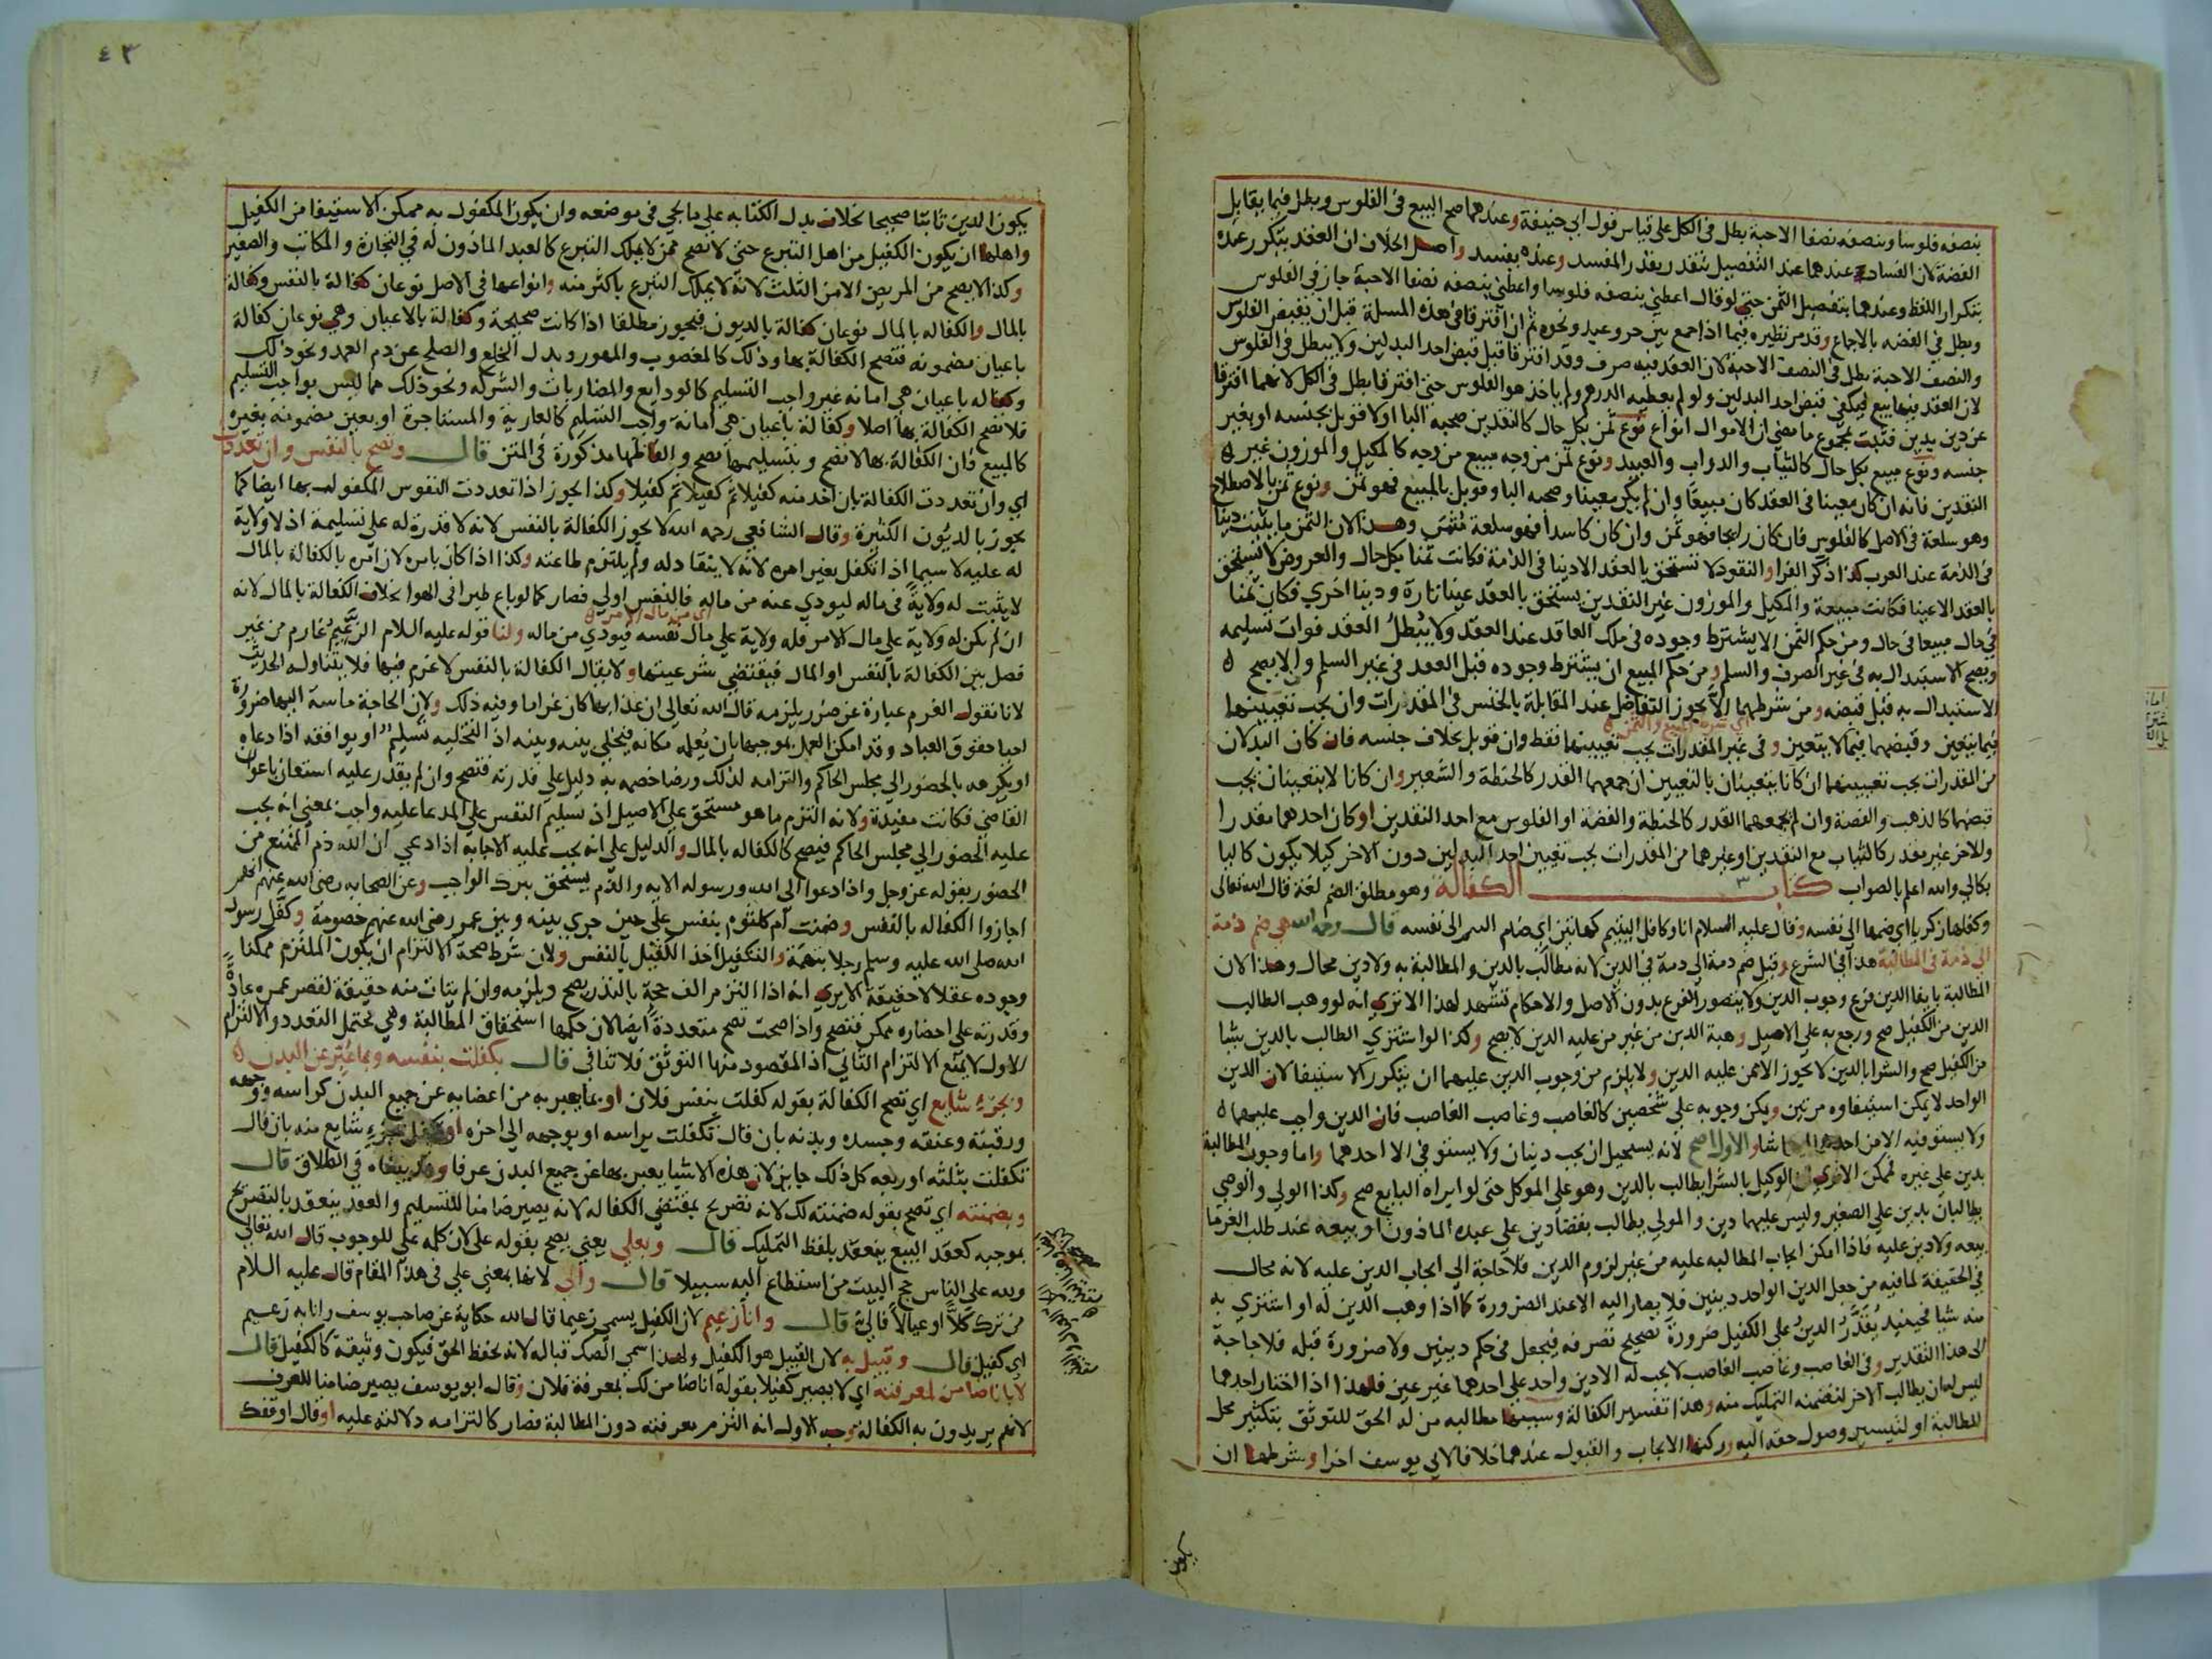 بنصفه فلوسا وبنصفه نصفا الا حبة بطل فى الكل على قياس قول ابي حنيفة وعندهما صح البيع فى الفلوس وبطل فيما يقابل
الفضة لان الفساد عندهما عند التفصيل يتقدر بقدر المفسد وعنده يفسد واصل الخلاف ان العقد يتكرر عنده
بتكرار اللفظ وعندهما بتفصيل الثمن حتى لو قال اعطني بنصفه فلوسا واعطني بنصفه نصفا الا حبة جاز في الفلوس
وبطل فى الفضه بالاجماع وقد مر نظيره فيما اذا جمع بين حر وعبد ونحوه ثم ان افترقا فى هذه المسلة قبل ان يقبض الفلوس
والنصف الا حبة بطل فى النصف الا حبة لان العقد فيه صرف وقد افترقا قبل قبض احد البدلين ولا يبطل فى الفلوس
لان العقد فيها بيع فيكفى قبض احد البدلين ولو لم يعطه الدرهم ولم ياخذ هو الفلوس حتى افترقا بطل فى الكل لانهما افترقا
عن دين بدين فثبت بمجموع ما مضى ان الاموال انواع نوع ثمن بكل حال كالنقدين صحبه البا او لا قوبل بجنسه او بغير
جنسه ونوع مبيع بكل حال كالثياب والدواب والعبيد ونوع ثمن من وجه مبيع من وجه كالمكيل والموزون غير
النقدين فانه ان كان معينا فى العقد كان مبيعا وان لم يكن معينا وصحبه البا وقوبل بالمبيع فهو ثمن ونوع ثمن بالاصطلاح
وهو سلعة فى الاصل كالفلوس فان كان رايجا فهو ثمن وان كان كاسدا فهو سلعة مثمن وهذا لان الثمن ما يثبت دينا
فى الذمة عند العرب كذا ذكر الفرا والنقود لا تستحق بالعقد الا دينا فى الذمة فكانت ثمنا بكل حال والعروض لا تستحق
بالعقد الا عينا فكانت مبيعة والمكيل والموزون غير النقدين يستحق بالعقد عينا تارة ودينا اخري فكان ثمنا
في حال مبيعا فى حال ومن حكم الثمن الا يشترط وجوده فى ملك العاقد عند العقد ولا يبطل العقد فوات تسليمه
ويصح الاستبدال به فى غير الصرف والسلم ومن حكم المبيع ان يشترط وجوده قبل العقد فى غير السلم والا يصح
الاستبدال به قبل قبضه ومن شرطهما الا يجوز التفاضل عند المقابلة بالجنس فى المقدرات وان يجب تعيينهما
فيما يتعين وقبضهما فيما لا يتعين وفى غير المقدرات يجب تعيينهما فقط وان قوبل بخلاف جنسه فان كان البدلان
من المقدرات يجب تعيينهما ان كانا يتعينان بالتعيين ان جمعهما القدر كالحنطة والشعير وان كانا لا يتعينان يجب
قبضهما كالذهب والفضة وان لم يجمعهما القدر كالحنطة والفضة او الفلوس مع احد النقدين او كان احدهما مقدرا
والاخر غير مقدر كالثياب مع النقدين او غيرهما من المقدرات يجب تعيين احد البدلين دون الاخر كيلا يكون كاليا
بكالي والله اعلم بالصواب كتاب الكفالة وهو مطلق الضم لغة قال الله تعالى
وكفلها زكريا اي ضمها الى نفسه وقال عليه السلام انا وكافل اليتيم كهاتين اي ضام اليتيم الى نفسه قال رحمه الله هي ضم ذمة
الى ذمة فى المطالبة هذا فى الشرع وقيل ضم ذمة الى ذمة في الدين لانه مطالب بالدين والمطالبة به ولا دين محال وهذا لان
المطالبة بايفا الدين فرع وجوب الدين ولا يتصور الفرع بدون الاصل والاحكام تشهد لهذا الا تري انه لو وهب الطالب
الدين من الكفيل صح ورجع به على الاصيل وهبة الدين من غير من عليه الدين لا يصح وكذا لو اشتري الطالب بالدين شيا
من الكفيل صح والشرا بالدين لا يجوز الا ممن عليه الدين ولا يلزم من وجوب الدين عليهما ان يتكرر الاستيفا لان الدين
الواحد لا يمكن استيفاوه مرتين ويكن وجوبه على شخصين كالغاصب وغاصب الغاصب فان الدين واجب عليهما
ولا يستوفيه الا من احدهما ايهما شا والاول اصح لانه يستحيل ان يجب دينان ولا يستوفي الا احدهما واما وجوب المطالبة
بدين على غيره فممكن الا تري ان الوكيل بالشرا يطالب بالدين وهو على الموكل حتى لو ابراه البايع صح وكذا الولي والوصي
يطالبان بدين على الصغير وليس عليهما دين والمولي يطالب بقضا دين علي عبده الماذون او بيعه عند طلب الغرما
بيعه ولا دين عليه فاذا امكن ايجاب المطالبه عليه من غير لزوم الدين فلا حاجة الي ايجاب الدين عليه لانه محال
فى الحقيقة لما فيه من جعل الدين الواحد دينين فلا يصار اليه الا عند الضرورة كما اذا وهب الدين له او اشتري به
منه شيا فحينيذ يقدر الدين على الكفيل ضرورة تصحيح تصرفه فيجعل فى حكم دينين ولا ضرورة قبله فلا حاجة
الى هذا التقدير وفى الغاصب وغاصب الغاصب لا يجب له الا دين واحد على احدهما غير عين فلهذا اذا اختار احدهما
ليس له ان يطالب الاخر لتضمنه التمليك منه وهذا تفسير الكفالة وسببها مطالبه من له الحق للتوثق بتكثير محل
المطالبة او لتيسير وصول حقه اليه وركنها الايجاب والقبول عندهما خلافا لابي يوسف اخرا وشرطها ان
يكون
٤٣
يكون الدين ثابتا صحيحا بخلاف بدل الكتابه علي ما يجي في موضعه وان يكون المكفول به ممكن الاستيفا من الكفيل
واهلها ان يكون الكفيل من اهل التبرع حتى لا تصح ممن لا يملك التبرع كالعبد الماذون له في التجارة والمكاتب والصغير
وكذا لا يصح من المريض الا من الثلث لانه لا يملك التبرع باكثر منه وانواعها فى الاصل نوعان كفالة بالنفس وكفالة
بالمال والكفاله بالمال نوعان كفالة بالديون فيجوز مطلقا اذا كانت صحيحة وكفالة بالاعيان وهي نوعان كفالة
باعيان مضمونه فتصح الكفالة بها وذلك كالمغصوب والمهور وبدل الخلع والصلح عن دم العمد ونحو ذلك
وكفاله باعيان هي امانه غير واجب التسليم كالودايع والمضاربات والشركه ونحو ذلك مما ليس بواجب التسليم
فلا تصح الكفالة بها اصلا وكفالة باعيان هي امانة واجب التسليم كالعارية والمستاجرة او بعين مضمونه بغيره
كالمبيع فان الكفالة بها لا تصح وبتسليمها تصح والفاظها مذكورة فى المتن قال وتصح بالنفس وان تعددت
اي وان تعددت الكفالة بان اخذ منه كفيلا ثم كفيلا ثم كفيلا وكذا يجوز اذا تعددت النفوس المكفول بها ايضا كما
يجوز بالديون الكثيرة وقال الشافعي رحمه الله لا يجوز الكفالة بالنفس لانه لا قدرة له على تسليمه اذ لا ولاية
له عليه لا سيما اذا تكفل بغير امره لانه لا ينقاد له ولم يلتزم طاعته وكذا اذا كان بامره لان امره بالكفالة بالمال
لا يثبت له ولاية فى ماله ليودي عنه من ماله فالنفس اولي فصار كما لو باع طيرا فى الهوا بخلاف الكفالة بالمال لانه
اي من مال الامر
ان لم يكن له ولاية علي مال الامر فله ولاية علي مال نفسه فيودي من ماله ولنا قوله عليه السلام الزعيم غارم من غير
فصل بين الكفالة بالنفس او المال فيقتضي شرعيتها ولا يقال الكفالة بالنفس لا غرم فيها فلا يتناوله الحديث
لانا نقول الغرم عبارة عن ضرر يلزمه قال الله تعالي ان عذابها كان غراما وفيه ذلك ولان الحاجة ماسة اليها ضرورة
احيا حقوق العباد وقد امكن العمل بموجبها بان يعلمه مكانه فيخلي بينه وبينه اذ التخليه تسليم او يوافقه اذا دعاه
او يكرهه بالحضور الي مجلس الحاكم والتزامه لذلك ورضا خصمه به دليل علي قدرته فتصح وان لم يقدر عليه استعان باعوان
القاضي فكانت مفيدة ولانه التزم ما هو مستحق على الاصيل اذ تسليم النفس على المدعا عليه واجب بمعني انه يجب
عليه الحضور الي مجلس الحاكم فيصح كالكفاله بالمال والدليل على انه يجب عليه الاجابه اذا دعي ان الله ذم الممتنع من
الحضور بقوله عز وجل واذا دعوا الى الله ورسوله الايه والذم يستحق بترك الواجب وعن الصحابه رضي الله عنهم انهم
اجازوا الكفاله بالنفس وضمنت ام كلثوم بنفس علي حين جري بينه وبين عمر رضي الله عنهم خصومة وكفل رسول
الله صلى الله عليه وسلم رجلا بتهمة والتكفيل اخذ الكفيل بالنفس ولان شرط صحة الالتزام ان يكون الملتزم ممكنا
وجوده عقلا لا حقيقة الا يري انه اذا التزم الف حجة بالنذر يصح ويلزمه وان لم يتات منه حقيقة لقصر عمره عادة
وقدرته على احضاره ممكن فتصح واذا صحت تصح متعددة ايضا لان حكمها استحقاق المطالبة وهي تحتمل التعدد والالتزام
الاول لا يمنع الالتزام الثاني اذ المقصود منها التوثق فلا تنافى قال بكفلت بنفسه وبما عبر عن البدن
وبجزء شايع اي تصح الكفالة بقوله كفلت بنفس فلان او بما يعبر به من اعضايه عن جميع البدن كراسه ووجهه
ورقبته وعنقه وجسده وبدنه بان قال تكفلت براسه او بوجهه الى اخره او تكفل بجزء شايع منه بان قال
تكفلت بثلثه او ربعه كل ذلك جايز لان هذه الاشيا يعبر بها عن جميع البدن عرفا وقد بيناه في الطلاق قال
وبضمنته اي تصح بقوله ضمنته لك لانه تصريح بمقتضي الكفاله لانه يصير ضامنا للتسليم والعقد ينعقد بالتصريح
بموجبه كعقد البيع ينعقد بلفظ التمليك قال وبعلي يعني يصح بقوله على لان كلمه على للوجوب قال الله تعالي
ولله على الناس حج البيت من استطاع اليه سبيلا قال والي لانها بمعني على فى هذا المقام قال عليه السلام
من ترك كلا او عيالا فالي قال وانا زعيم لان الكفيل يسمي زعيما قال الله حكاية عن صاحب يوسف وانا به زعيم
اي كفيل قال وقبيل به لان القبيل هو الكفيل ولهذا سمي الصك قباله لانه يحفظ الحق فيكون وثيقة كالكفيل قال
لا بانا ضامن لمعرفته اي لا يصير كفيلا بقوله انا ضامن لك بمعرفة فلان وقال ابو يوسف يصير ضامنا للعرف
لانهم يريدون به الكفالة وجه الاول انه التزم معرفته دون المطالبة فصار كالتزامه دلالته عليه او قال اوقفك